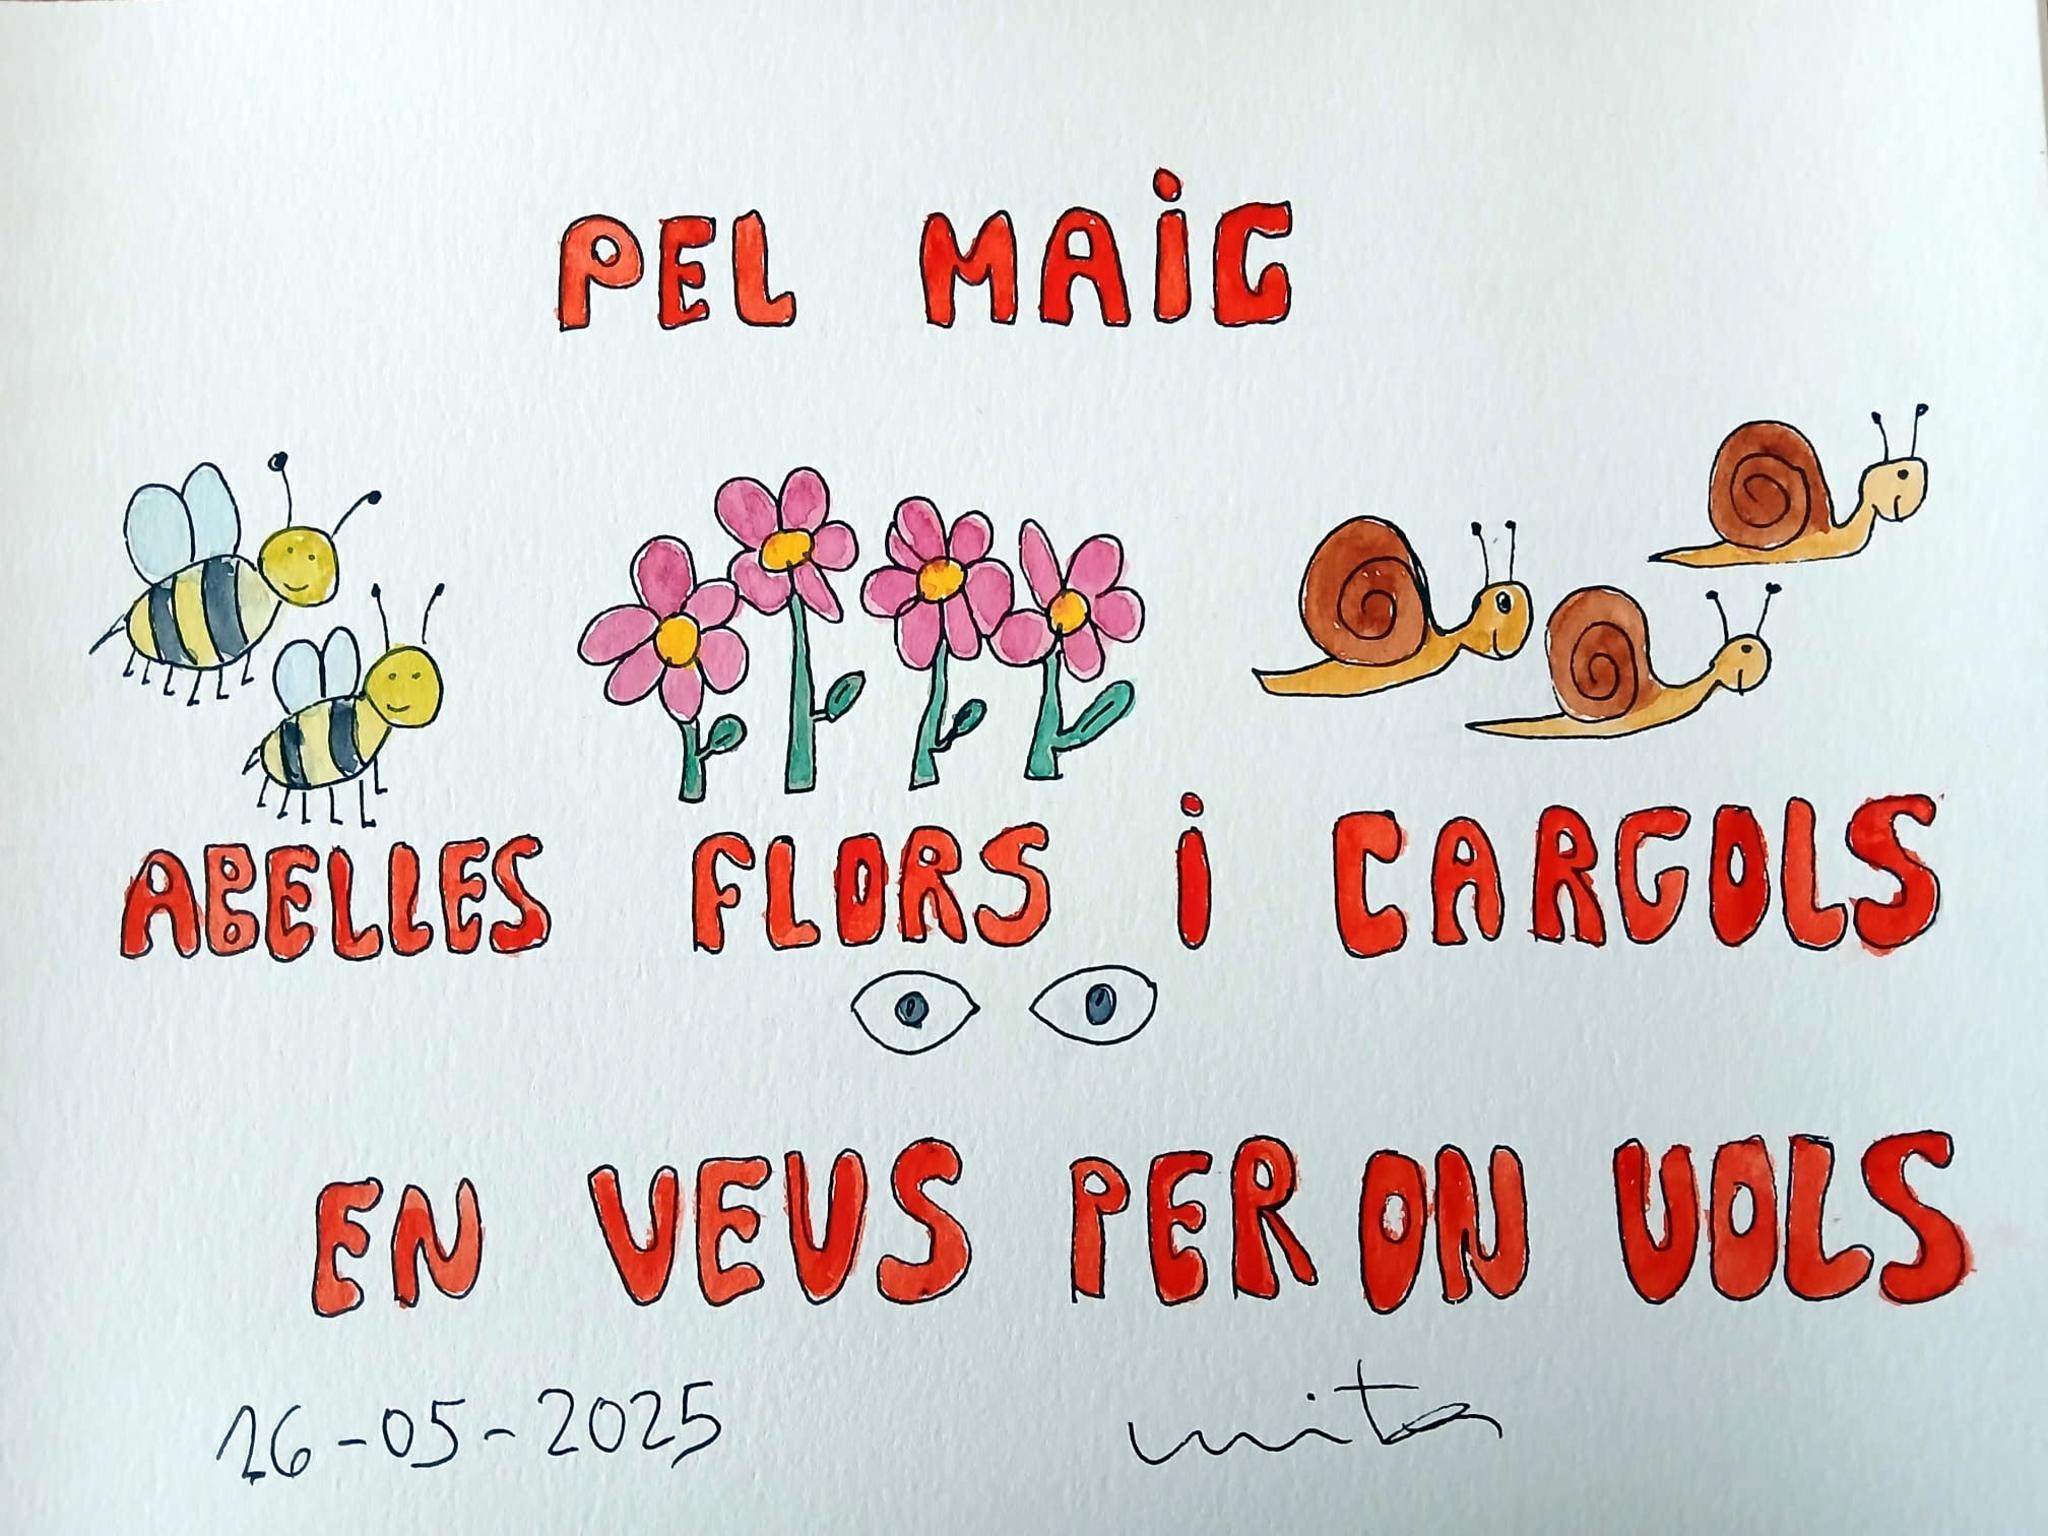 PEL MAiG
ABELLES FLORS i CARGOLS
EN VEUS PER ON VOLS
16-05-2025 mita